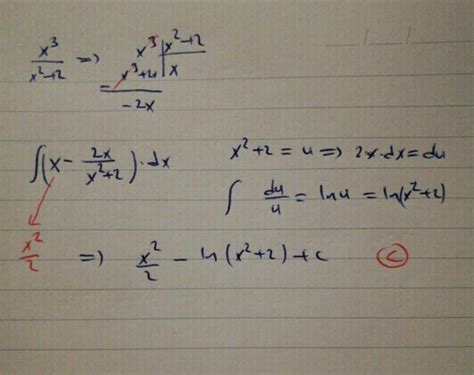 x³/(x²+2) => x³ | x²+2
x³+2x | x
-2x
∫(x - 2x/(x²+2))·dx
x²+2 = u => 2x·dx = du
∫ du/u = ln u = ln(x²+2)
x²/2 => x²/2 - ln(x²+2) + c
C